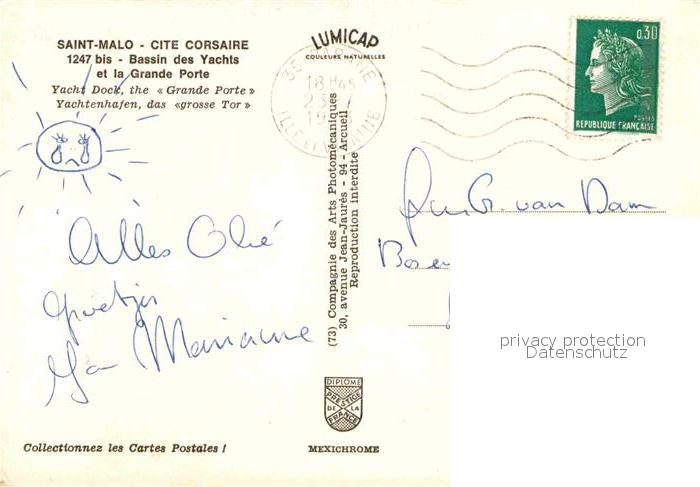 SAINT-MALO - CITE CORSAIRE
1247 bis - Bassin des Yachts
et la Grande Porte
Yacht Dock, the « Grande Porte »
Yachtenhafen, das «grosse Tor»
LUMICAP
COULEURS NATURELLES
18 H 45
ILLE ET VILAINE
0,30
POSTES
REPUBLIQUE FRANÇAISE
(73) Compagnie des Arts Photomécaniques
30, avenue Jean-Jaurès - 94 - Arcueil
Reproduction interdite
G. van Dam
Alles Oké
groetjes
Marianne
privacy protection
Datenschutz
DIPLOME
PRESTIGE
DE LA
FRANCE
Collectionnez les Cartes Postales !
MEXICHROME